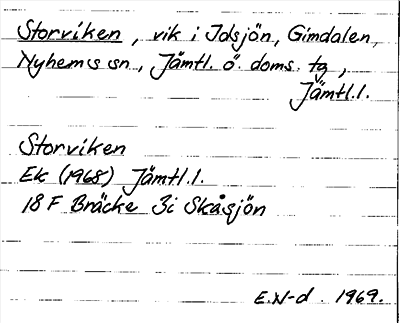 Storviken, vik i Idsjön, Gimdalen,
Nyhems sn, Jämtl. ö. doms. tg,
Jämtl.l.
Storviken
Ek (1968) Jämtl.l.
18 F Bräcke 3i Skåsjön
E.W-d. 1969.